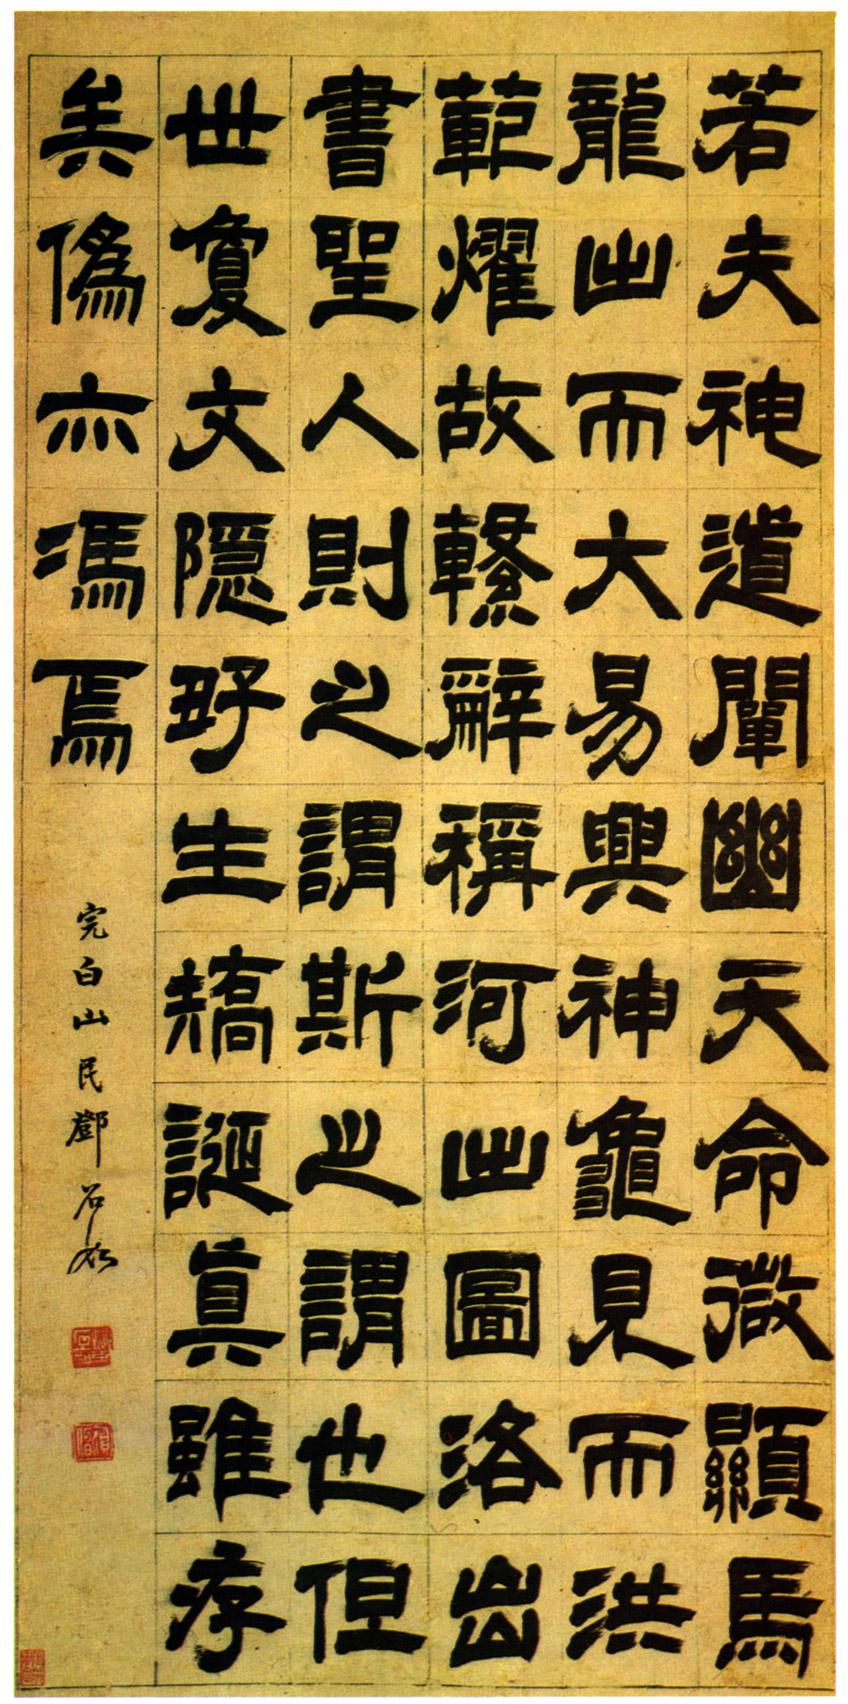 若夫神道闡幽天命微顯馬
龍出而大易興神龜見而洪
範燿故繫辭稱河出圖洛出
書聖人則之謂斯之謂也但
世敻文隱好生矯誕眞雖存
矣僞亦馮焉
完白山民鄧石如